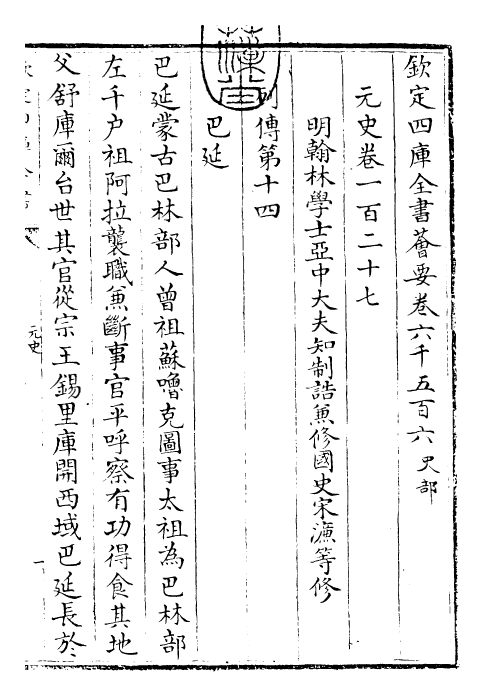 欽定四庫全書薈要卷六千五百六 史部
元史卷一百二十七
明翰林學士亞中大夫知制誥兼修國史宋濂等修
列傳第十四
巴延
巴延蒙古巴林部人曾祖蘇嚕克圖事太祖為巴林部
左千户祖阿拉襲職兼斷事官平呼察有功得食其地
父舒庫爾台世其官從宗王錫里庫開西域巴延長於
元史
一